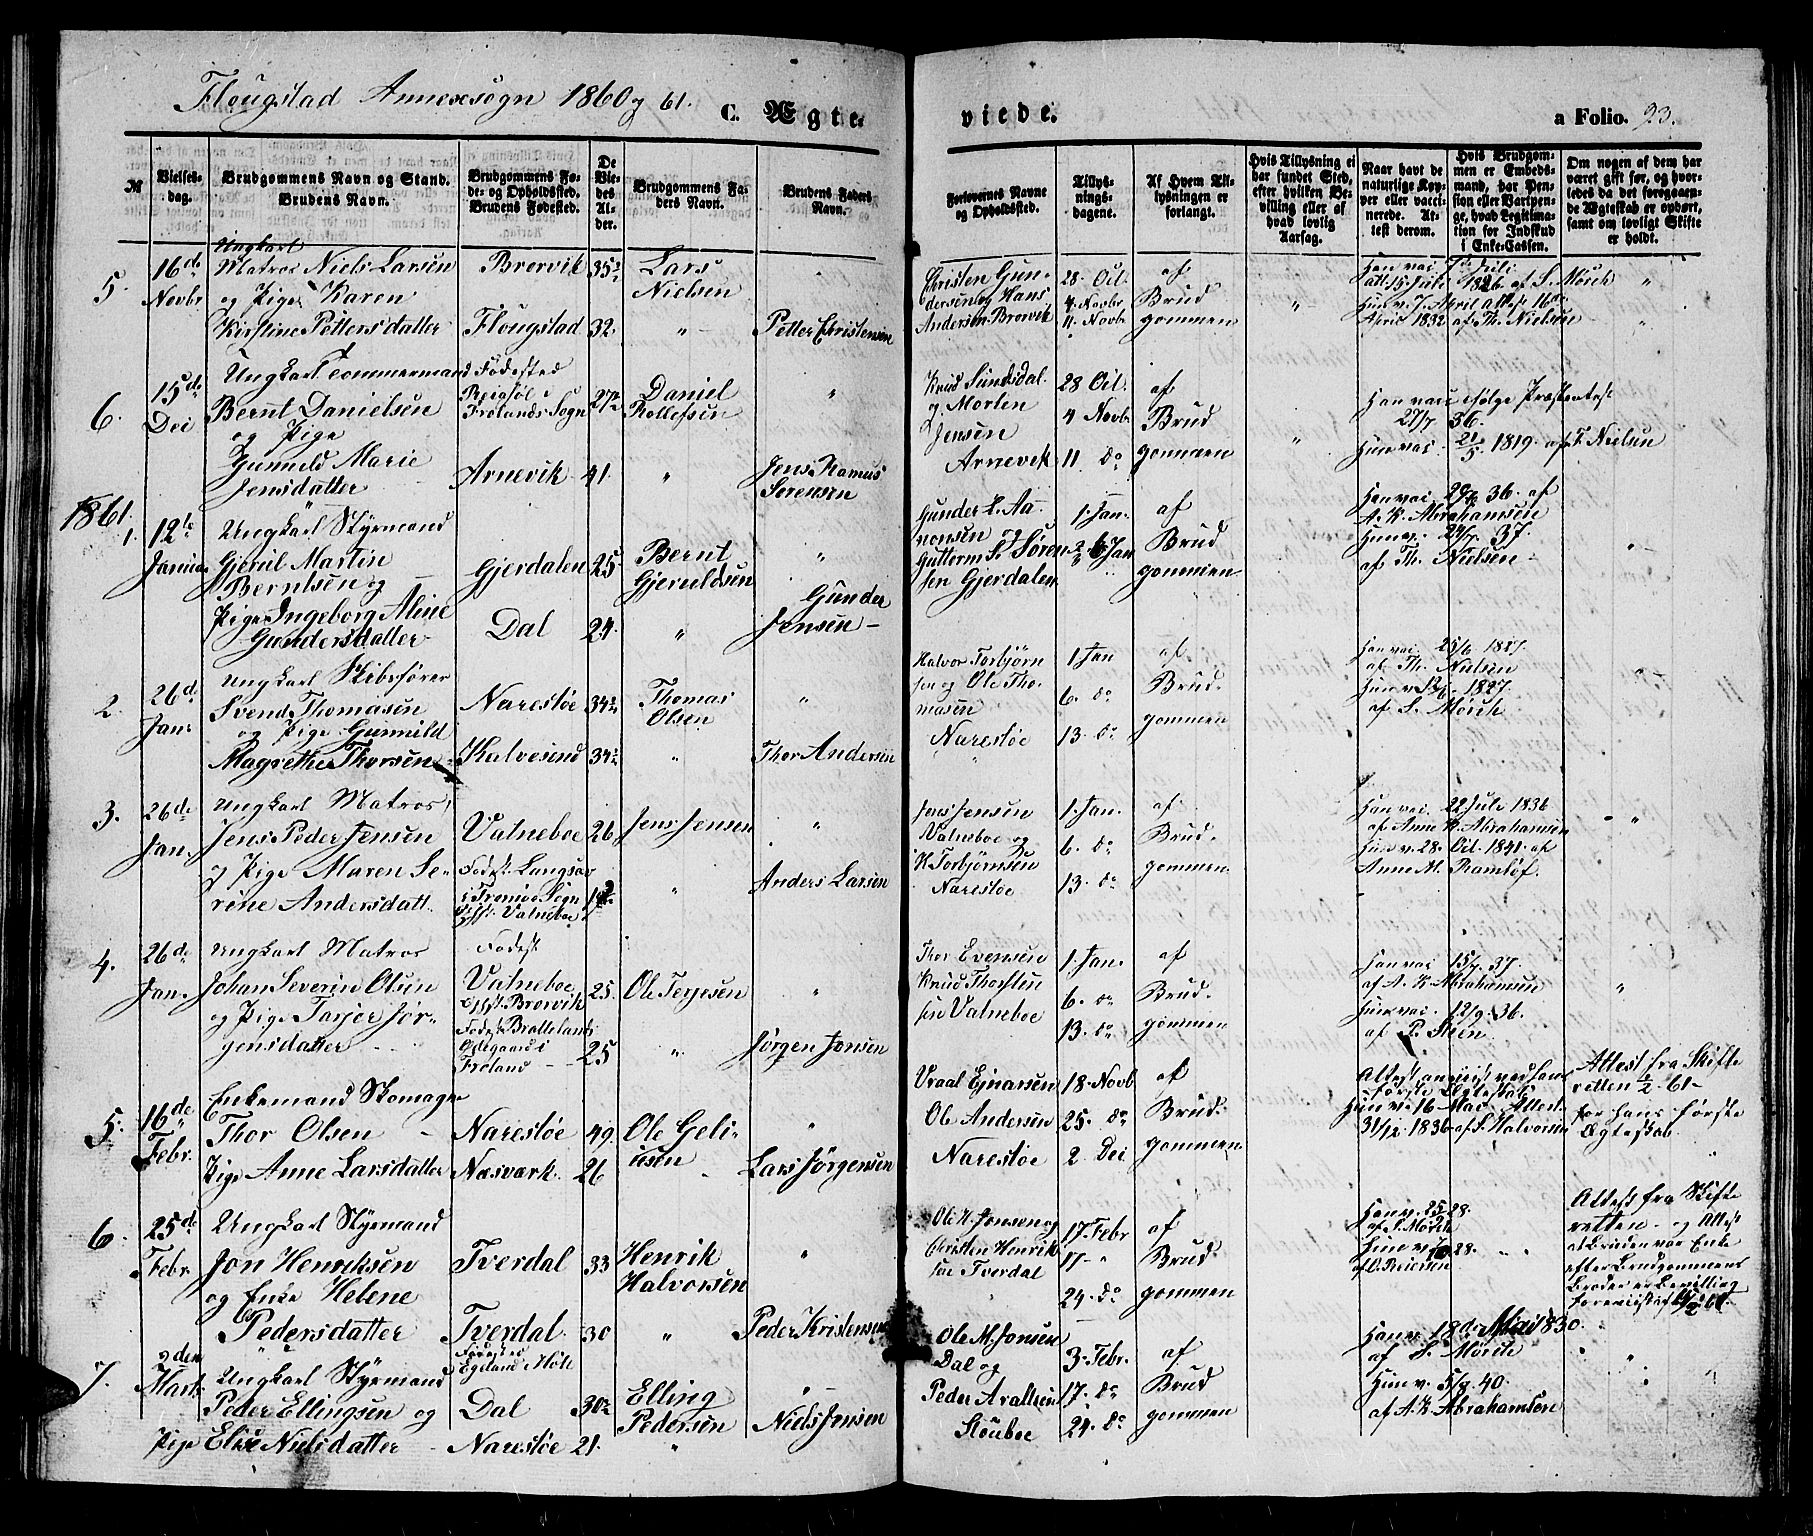 Flougstad Annexsogn 1860 og 61.
C. Ægte-
viede.
a Folio. 23.
№
Vielses-
dag.
Brudgommens Navn og Stand.
Brudens Navn.
Brudgommens Fø-
de- og Opholdssted.
Brudens Fødested.
De
Vie-
des
Al-
der.
Brudgommens Fa-
ders Navn.
Brudens Faders
Navn.
Forlovernes Navne
og Opholdssted.
Tillys-
nings-
dagene.
Af Hvem Til-
lysningen er
forlangt.
Hvis Tillysning ei
har fundet Sted,
efter hvilken Be-
villing eller af
hvad lovlig
Aarsag.
Naar havt de
naturlige Kop-
per eller vacci-
nerede. At-
test derom.
Hvis Brudgom-
men er Embeds-
mand, har Pen-
sion eller Vartpen-
ge, hvad Legitima-
tion for Indskud
i Enke-Cassen.
Om nogen af dem har
været gift før, og hvor-
ledes da det foregaaen-
de Ægteskab er ophørt,
samt om lovligt Skifte
er holdt.
5.
16de
Novbr
Ungkarl
Matros Niels Larsen
og Pige Karen
Kirstine Pettersdatter
Brørvik
Flougstad
35½
32.
Lars
Nielsen
Petter Christensen
Christen Gun-
dersen og Hans
Andersen Brørvik
28. Oct.
4. Novbr
11. Novbr
af
Brud
gommen
Han vac. 7de Juli
att. 15 Juli 1826 af S. Mørch
Hun v. 7. April attest 16de
April 1832 af Th. Nielsen
6.
15de
Dec
Ungkarl Tommermand
Bernt Danielsen
og Pige
Gunneld Marie
Jensdatter
Fødested
i
Frolands Sogn
Arnevik
27½
41.
Daniel
Rollefsen
Jens Ramus
Sørensen
Knud Sundsdal
og Morten
Jensen
Arnevik
28 Oct.
4 Novb
11 do
af
Brud
gommen
Han vacc ifølge Præsteatest
27/7 36.
Hun vac. 21/5 1819. af T. Nielsen
1861.
1.
12te
Januar
Ungkarl Styrmand
Gjerul Martin
Berntsen og
Pige Ingeborg Aline
Gundersdatter
Gjerdalen
Dal
25.
24.
Bernt
Gjeruldsen
Gunder
Jensen
Gunder L. Aa-
nonsen
Guttorm S. Søren-
sen Gjerdalen
1. Jan.
6 Jan
af
Brud
gommen
Han vac. 36. af
A. K. Abrahamsen
Hun v. 24/7. 37.
af Th. Nielsen
2.
26de
Jan.
Ungkarl Skibsfører
Svend Thomasen
og Pige Gunnild
Magrethe Thorsen
Narestøe
Kalvesund
34½
34½
Thomas
Olsen
Thor Andersen
Halvor Torbjørn
sen og Ole Tho-
masen
Narestøe
1 Jan
6. do
13. do
af
Brud-
gommen
Han vac. 25/6 1827.
af Th. Nielsen
Hun v. 1827.
af S. Mørch
3.
26de
Jan.
Ungkarl Matros
Jens Peder Jensen
og Pige Maren Se-
rine Andersdatt.
Valneboe
Fødest. Langsæ
i Tromøe Sogn
Opst. Valneboe
26.
Jens Jensen
Anders Larsen
Jens Jensen
Valneboe og
K. Torbjørnsen
Narestøe
1. Jan.
6. do
13. do
af
Brud-
gommen
Han vac. 22 Juli 1836
af Anne K. Abrahamsen
Hun v. 28. Oct. 1841. af
Anne M. Ramløf
4.
26de
Jan.
Ungkarl Matros
Johan Severin Olsen
og Pige Tarjer Jør-
gensdatter
Fødest
Valneboe
Opst. Brørvik
Fødest Bratteland
Ødegaard i
Froland
25.
25
Ole Terjesen
Jørgen Jonsen
Thor Evensen
Knud Thorsten
sen Valneboe
1. Jan.
6. do
13. do
af
Brud-
gommen
Han vac. 15/7. 37.
af A. K. Abrahamsen
Hun vac. 12/9. 36.
af P. Steen
5.
16de
Febr.
Enkemand Skomager
Thor Olsen
Pige Anne Larsdatter
Narestøe
Næsværk
49.
26
Ole Geli-
usen
Lars Jørgensen
Vraal Ejnarsen
Ole Andersen
Narestøe
18. Novb
25. do
2. Dec
af
Brud-
gommen
Attest anviist ved hans
første Ægteskab
Hun v. 16 Mai. Attest
31/12 1836. af S. Halvorsen
Attest fra Skifte
retten ½. 61
for hans første
Ægteskab.
6.
25de
Febr.
Ungkarl Styrmand
Jon Henriksen
og Enke Helene
Pedersdatter
Tverdal
Tverdal
33
30
Henrik
Halvorsen
Peder Kristensen
Ole H. Jonsen og
Christen Henrik-
sen Tverdal
17. Febr
17.
24. do
af
Brud-
gommen
Han v. 28.
af S. Mørch
Hun v. 28.
af O. Reiersen
Attest fra Skifte
retten og Attest
at Bruden var Enke
efter Brudgommens
Broder er Bevilling
61.
7.
2den
Marts
Ungkarl Styrmand
Peder Ellingsen og
Pige Elise Nielsdatter
Fødested
Egeland Holt
Dal
Narestøe
30½
21.
Elling
Pedersen
Niels Jensen
Ole M. Jonsen
Dal og
Peder Avaldsen
Støuboe
3. Febr.
17. do
24. do
af
Brud
gommen
Han v. 18de Mai 1830.
af S. Mørch
Hun v. 5/8. 40.
af A. K. Abrahamsen